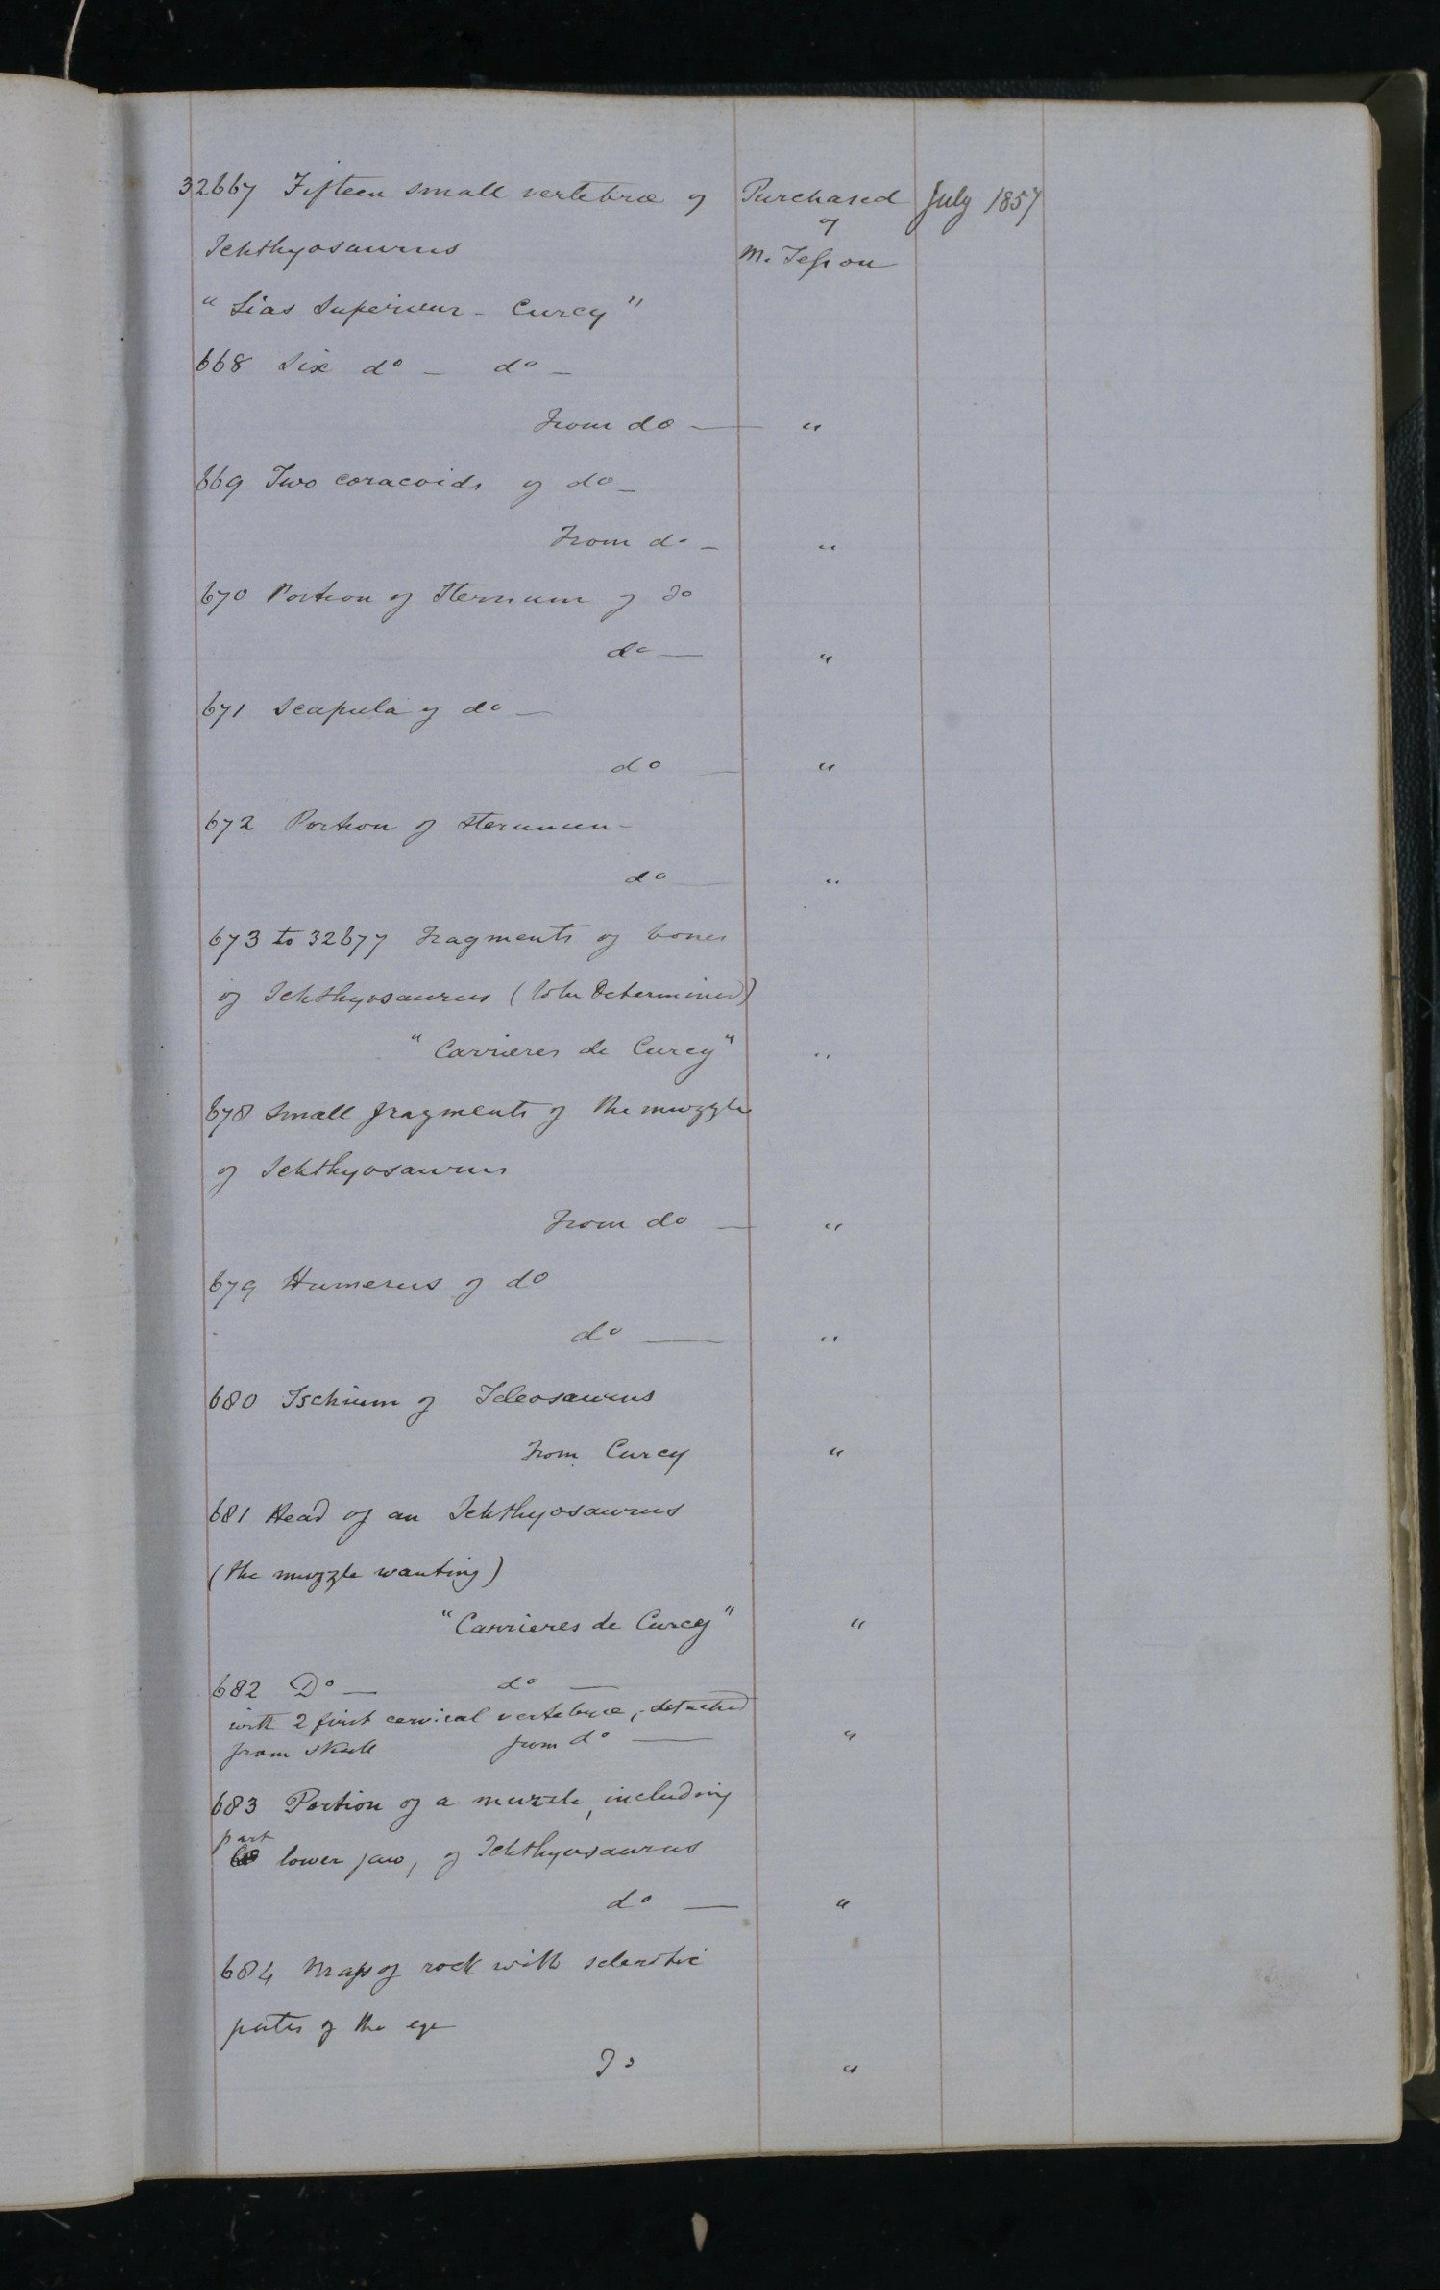 32667 Fifteen small vertebræ of Purchased July 1857
of
Ichthyosaurus M. Tesson
"Lias Superieur - Curcy"
668 Six do - do -
From do — "
669 Two coracoids of do -
From do - "
670 Portion of Sternum of Do
do — "
671 Scapula of do —
do — "
672 Portion of sternum -
do — "
673 to 32677 Fragments of bones
of Ichthyosaurus (to be Determined)
"Carrieres de Curcy" "
678 Small fragments of the muzzle
of Ichthyosaurus
From do — "
679 Humerus of do
do — "
680 Ischium of Teleosaurus
From Curcy "
681 Head of an Ichthyosaurus
(the muzzle wanting)
"Carrieres de Curcy" "
682 Do — do —
with 2 first cervical vertebræ, detached
from skull from do — "
683 Portion of a muzzle, including
part
lower jaw, of Ichthyosaurus
do — "
684 Mass of rock with sclerotic
plates of the eye
Do "